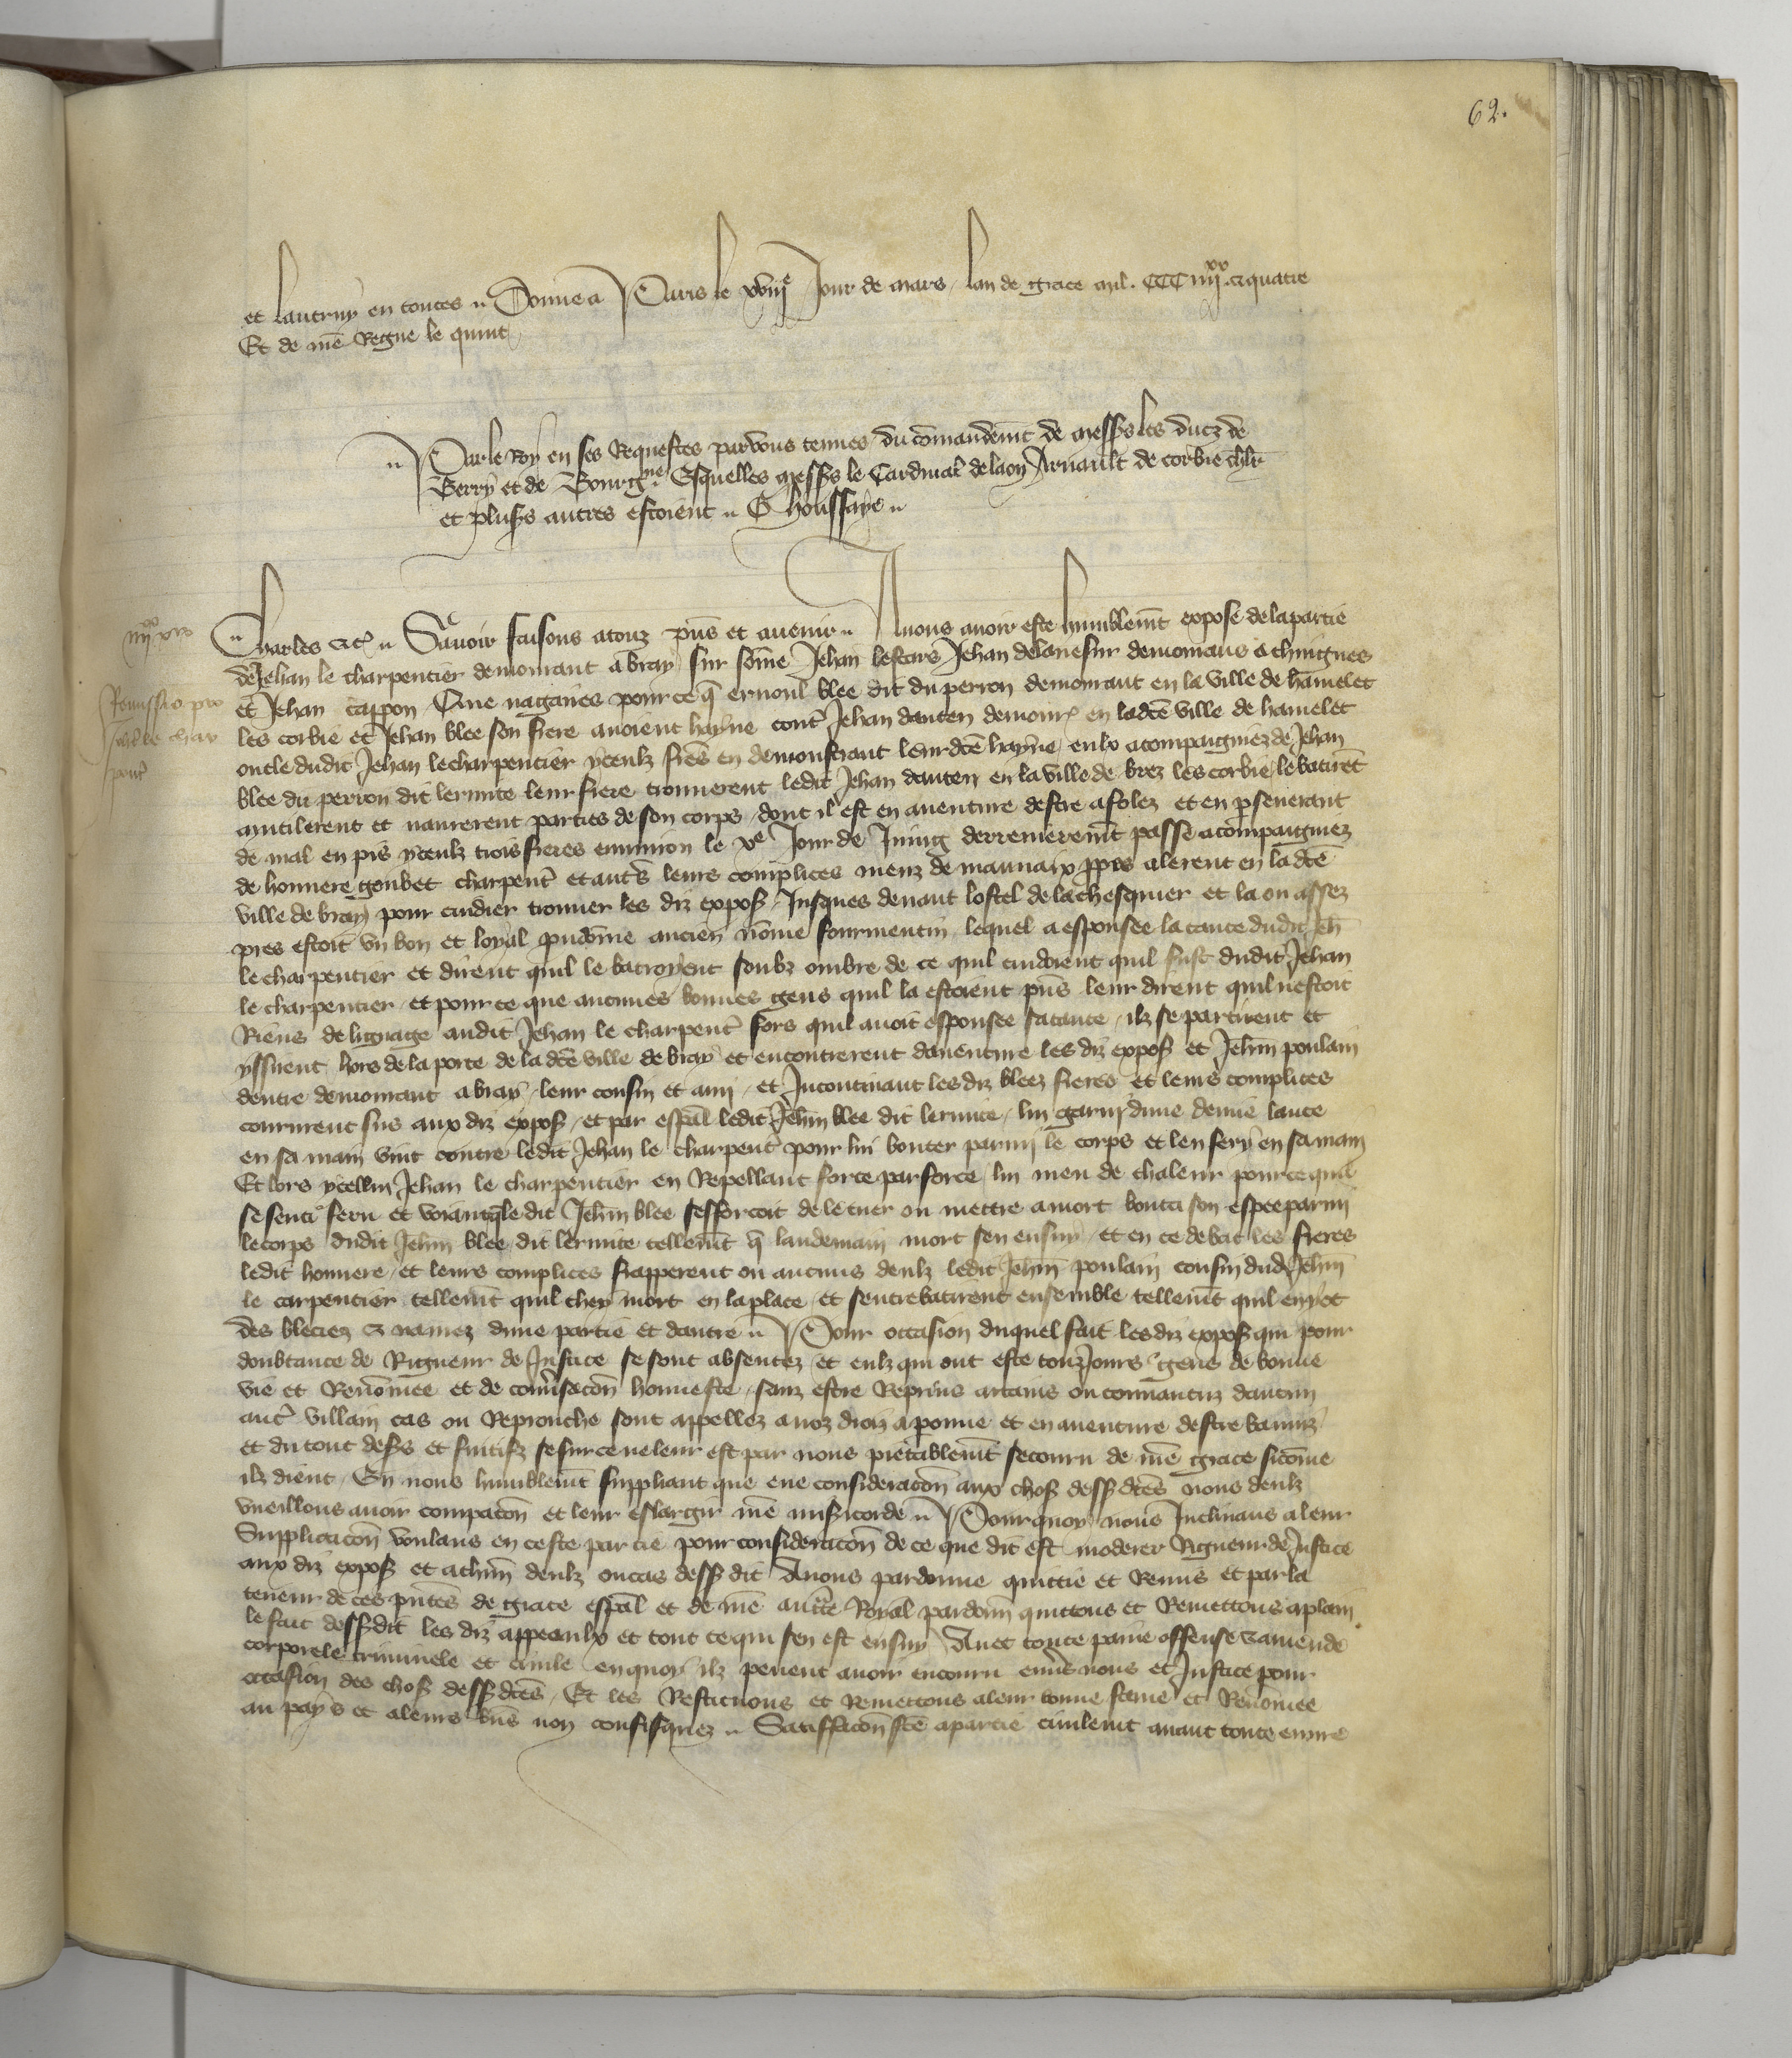 62.
et lautruy en toutes .. Donne a Paris le xviij^e Jour de mars lan de grace mil . CCC iiij^xx . et quatre
Et de nr̄e Regne le quint
.. Par le Roy en ses Requestes par vous tenues du cōmandem̄t de messrs les ducz de
Berry et de Bourg^ne Esquelles messrs le Cardinal de laon Arnault de corbie chlr
et plusrs autres estoient .. G houssaye ..
iiij^xx xvij
Remissio pro
Joh̄e le char
pent̉
.. Charles etc̉ .. Savoir faisons a touz pn̄s et avenir .. A nous avoir este humblem̄t expose de la partie
de Jehan le charpentier demourant a bray sur sōme Jehan Jehan demourans a chuignes
et Jehan cappon Que nagaires pour ce q̄ ernoul blee dit du perron demourant en la ville de hamelet
les corbie et Jehan blee son frere avoient hayne contr̉ Jehan dauten demour̉ en lad̄te ville de hamelet
oncle dudit Jehan le charpentier yceulx frēs en demonstrant leur d̄te hayne enlx acompaigniez de Jehan
blee du perron dit lermite leur frere trouverent ledit Jehan dauten en la ville de brez les corbie le batirēt
mutilerent et navrerent parties de son corps dont il est en aventure destre afolez et en p̄severant
de mal en pis yceulx trois freres environ le x^e Jour de Juing derrenierem̄t passe acompaigniez
de honnere goubet charpent̉ et autrs leurs complices meuz de mauvaix ppos alerent en la d̄te
ville de bray pour cuidier trouver les diz expos̄ Jusques devant lostel de lachesquier et la ou assez
pres estoit un bon et loyal preudōme ancien nōme fourmentin lequel a espousee la tante dudit Jeh̄
le charpentier et dirent quil le batroyent soubz ombre de ce quil cuidoient quil fust dudit Jehan
le charpentier et pour ce que aucunes bonnes gens quil la estoient pn̄s leur dirent quil nestoit
Riens de lignage audit Jehan le charpent̉ fors quil avoit espousee sa tante ilz se partirent et
yssirent hors de la porte de la d̄te ville de bray et encontrerent daventure les diz expos̄ et Jeh̄n poulain
dentre demourant a bray leur cousin et ami et Incontinant les diz bleez freres et leurs complices
coururent sus aux diz expos̄ et par esp̄al ledit Jeh̄n blee dit lermite lui garny dune demie lance
en sa main vint contre ledit Jehan le charpent̉ pour lui bouter parmi le corps et len fery en sa main
Et lors ycellui Jehan le charpentier en Repellant force par force lui meu de chaleur pour ce quil
se senti feru et voiant q̄ le dit Jeh̄n blee sefforcoit de le tuer ou mettre a mort bouta son espee parmi
le corps dudit Jeh̄n blee dit lermite tellem̄t q̄ landemain mort sen ensuy et en ce debat les freres
ledit honnere et leurs complices frapperent ou aucuns deulx ledit Jeh̄n poulain cousin dud̉ Jeh̄n
le carpentier tellem̄t quil chey mort en la place et sentrebatirent ensemble tellem̄t quil en y ot
des bleciez et navrez dune partie et dautre .. Pour occasion duquel fait les diz expos̄ qui pour
doubtance de Rigueur de Justice se sont absentez et eulx qui ont este touzJours gens de bonne
vie et Renōmee et de convsacōn honneste sanz estre Reprins actains ou convaincuz daucun
autr̉ villain cas ou Reprouche sont appellez a noz droiz a ponue et en aventure destre banniz
et du tout dess̄s et fuitifz se sur ce ne leur est par nous piteablem̄t secouru de nr̄e grace sicōme
ilz dient En nous humblem̄t suppliant que eue consideracōn aux chos̄ dess̄dctēs nous deulx
vueillons avoir compacōn et leur eslargir nr̄e misericorde .. Pourquoy nous Inclinans a leur
Supplicacōn voulans en ceste partie pour consideracōn de ce que dit est moderer Rigueur de Justice
aux diz expos̄ et a chūn deulx ou cas dess̄ dit Avons pardonne quittie et Remis et par la
teneur de ces pn̄tes de grace esp̄al et de nr̄e auct̄te Royal pardonn̄ quittons et Remettons a plain
le fait dess̄dit les diz appeaulx et tout ce qui sen est ensuy Avec toute paine offense et amende
corporele criminele et civile en quoy ilz peuent avoir encouru envers nous et Justice pour
occasion des chos̄ dess̄dctēs Et les Restituons et Remettons a leur bonne fame et Renōmee
au pays et a leurs biēs non confisquez .. Satisfacōn fcē a partie civilem̄t avant toute euvre